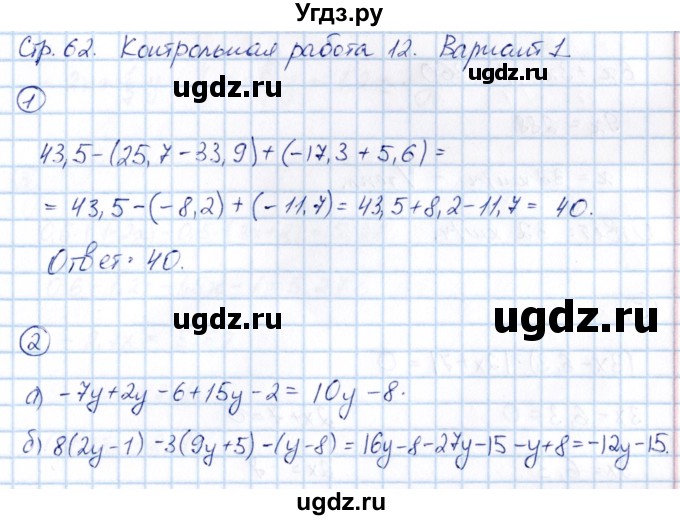 Угдз.ру
Стр. 62. Контрольная работа 12. Вариант 1
ugdz.ru
ugdz.ru
1
ugdz.ru
43,5-(25,7-33,9)+(-17,3+5,6)=
= 43,5-(-8,2)+(-11,7)=43,5+8,2-11,7= 40.
ugdz.ru
Ответ: 40.
ugdz.ru
ugdz.ru
2
а) -7y+2y-6+15y-2= 10y-8.
ugdz.ru
б) 8(2y-1)-3(9y+5)-(y-8)=16y-8-27y-15-y+8=-12y-15.
ugdz.ru